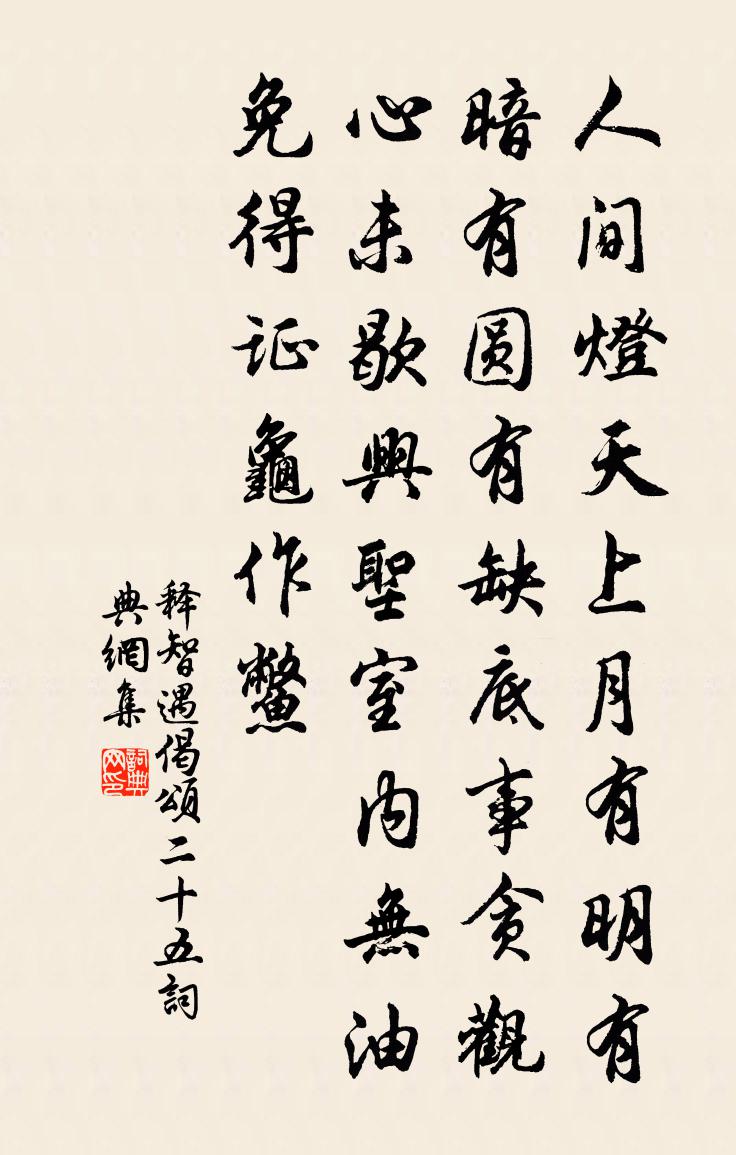 人间燈天上月有明有
暗有圆有缺底事贪觀
心未歇興聖室内無油
免得证龜作鱉
释智遇偈頌二十五詞
典網集
詞典网印